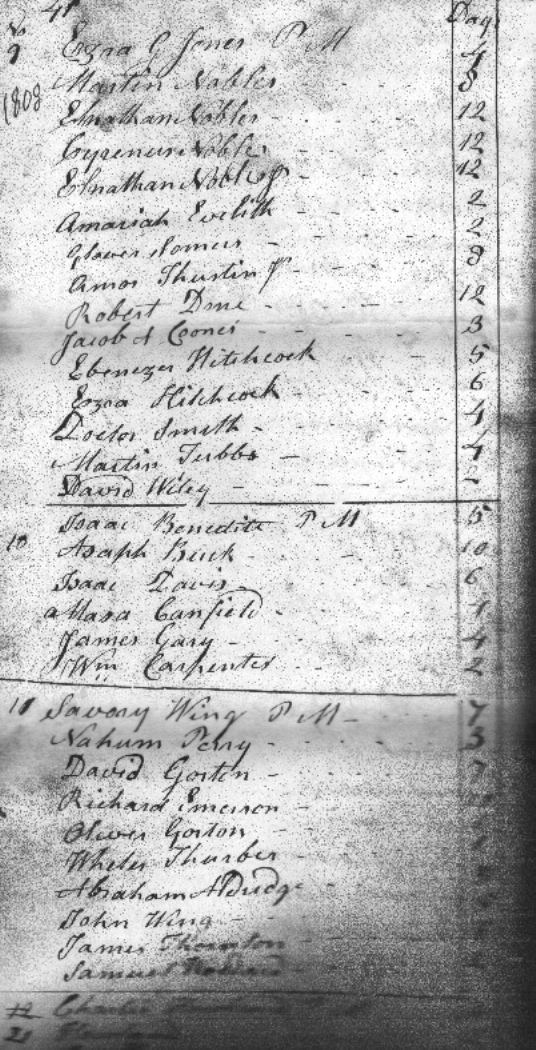 41 Days
No
9 Ezra G Jones P M 4
1808 Martin Nobles 8
Elnathan Nobles 12
Cyrenus Nobles 12
Elnathan Nobles Jr 12
Amariah Evelith 2
Glover Somers 2
Amos Thustin Jr 8
Robert Dme 12
Jacob A Coones 3
Ebenezer Hitchcock 5
Ezra Hitchcock 6
Doctor Smith 4
Martin Tubbs 4
David Wiley 2
Isaac Benedite P M 5
10 Asaph Buck 10
Isaac Davis 6
Masa Canfield
James Gary 4
Wm Carpenter 2
11 Savory Wing P M 7
Nahum Perry 3
David Gorton
Richard Emerson
Oliver Gorton
Wheler Thurber
Abraham Aldridge
John Wing
James Thornton
Samuel
12 Charles
21